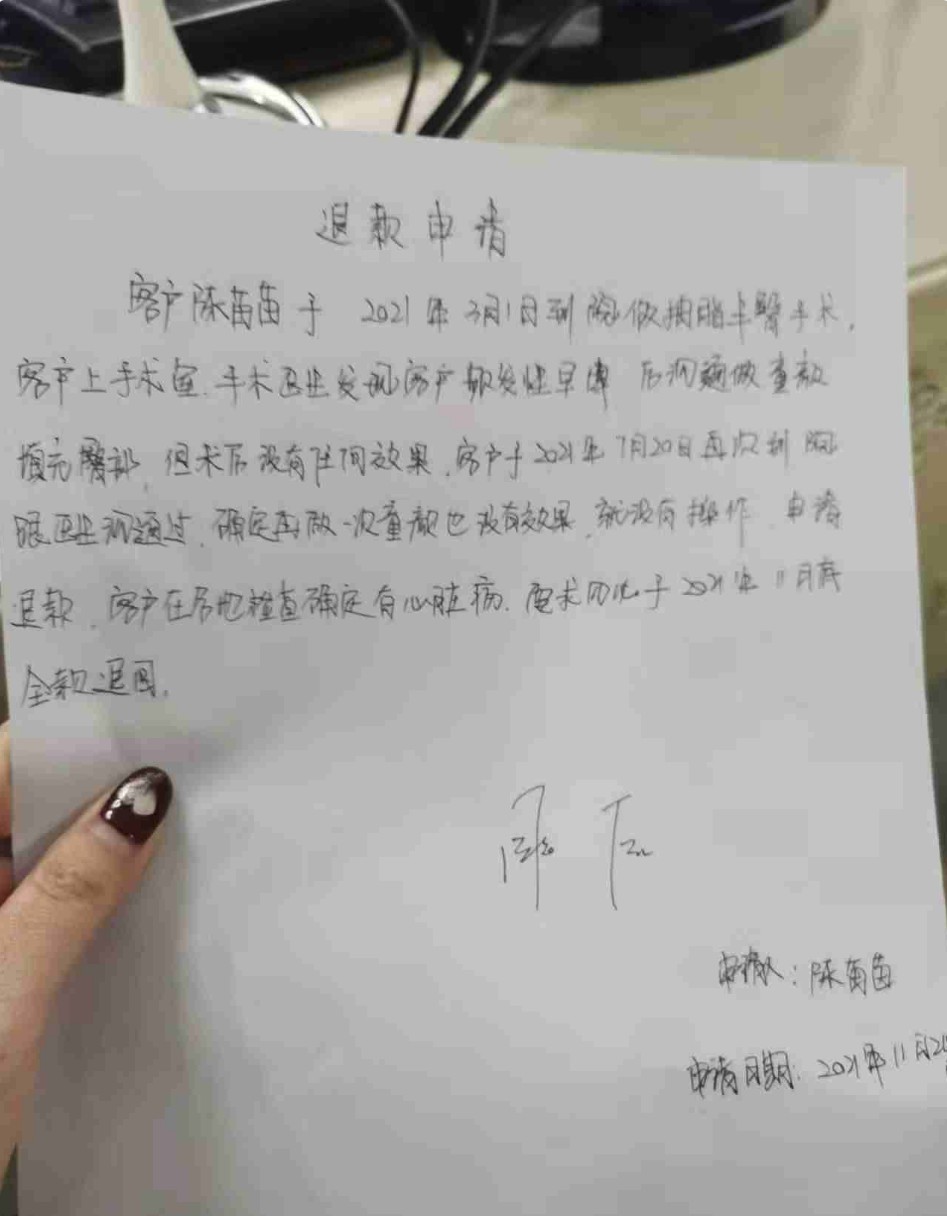 退款申请
客户陈苗苗于 2021年3月1日到院做抽脂丰臀手术,
客户上手术室,手术医生发现客户频发性早搏 后沟通做童颜
填充臀部,但术后没有任何效果,客户于2021年7月20日再次到院
跟医生沟通过,确定再做一次童颜也没有效果,就没有操作,申请
退款,客户在当地检查确定有心脏病,要求 于2021年11月底
全款退回.
申请人:陈苗苗
申请日期:2021年11月2